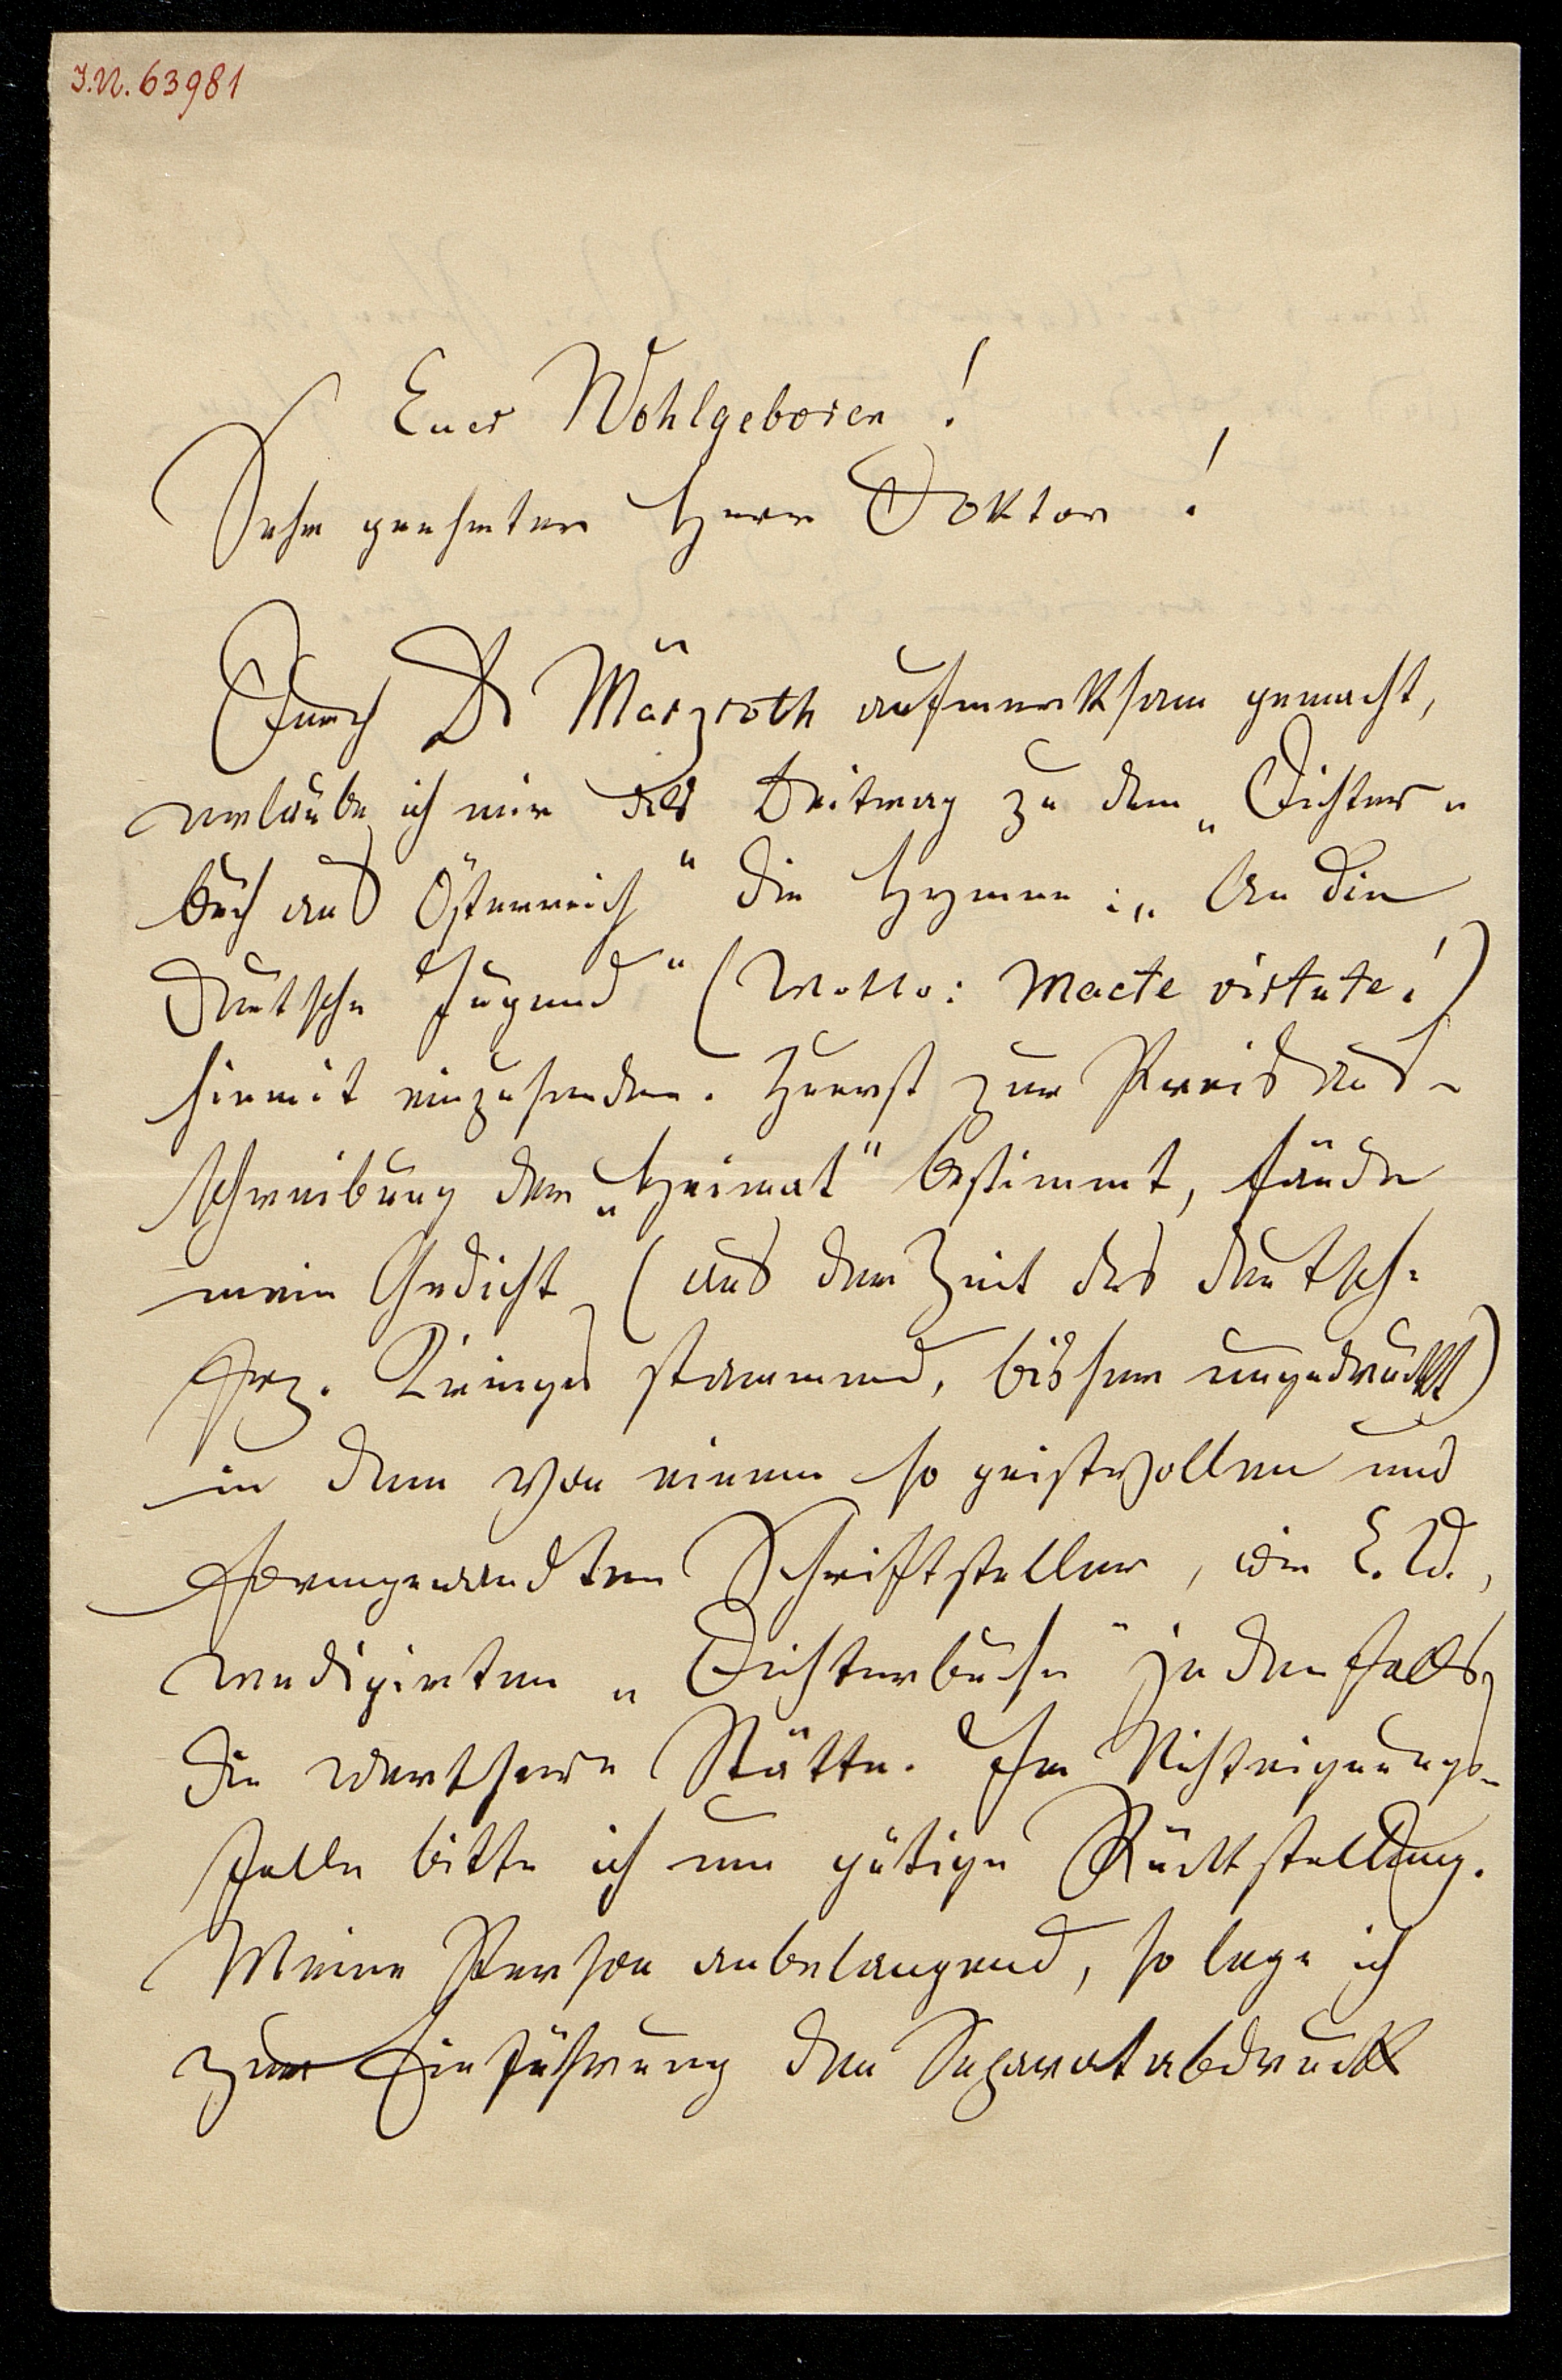 I.N. 63981
Euer Wohlgeboren!
Sehr geehrter Herr Doktor!
Durch Dr Märzroth aufmerksam gemacht,
erlaube ich mir als Beitrag zu dem „Dichter-
buch aus Österreich" die Hymne: „An die
deutsche Jugend" (Motto: Macte virtute!)
hiemit einzusenden. Zuerst zur Preisaus-
schreibung der „Heimat" bestimmt, fände
mein Gedicht (aus der Zeit des deutsch-
frz. Krieges stammend, bisher ungedruckt)
in dem von einem so geistvollen und
formgewandten Schriftsteller, wie E. W.,
redigirten „Dichterbuche" jedenfalls
die werthere Stätte. Im Nichteignungs-
falle bitte ich um gütige Rückstellung.
Meine Person anbelangend, so lege ich
zur Einführung den Separatabdruck